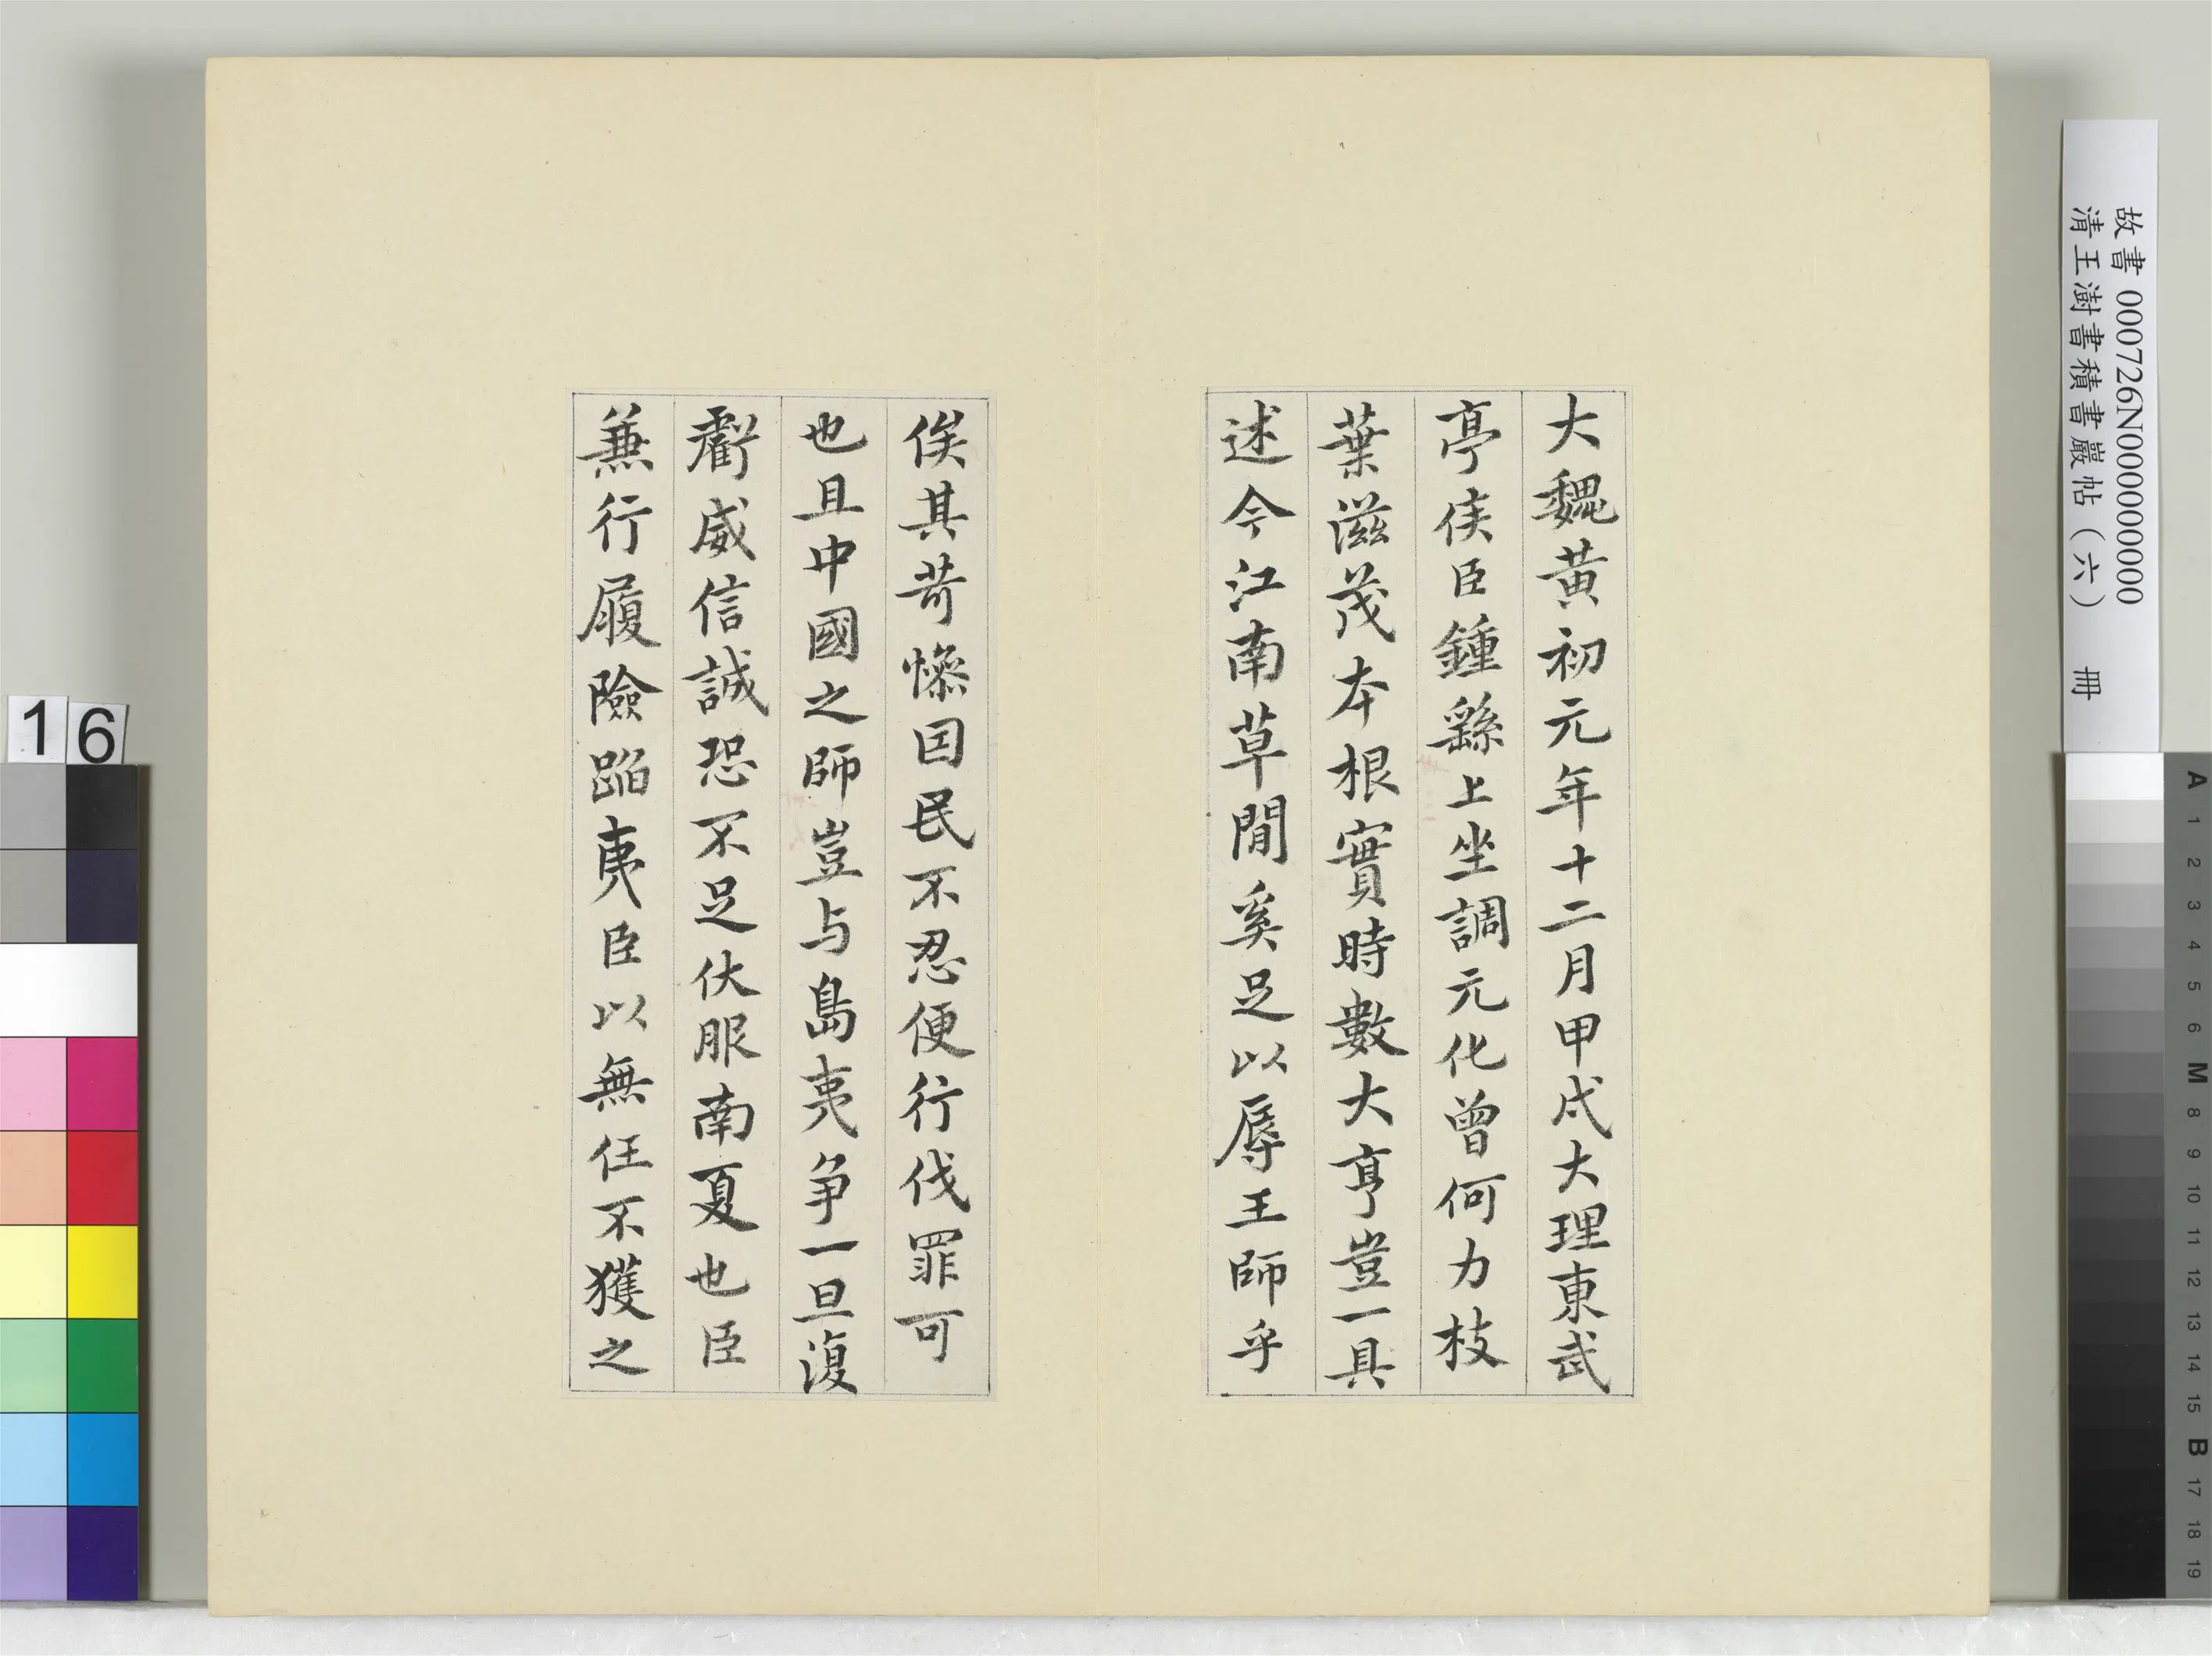 大魏黃初元年十二月甲戌大理東武
亭侯臣鍾繇上坐調元化曾何力枝
葉滋茂本根實時數大亨豈一具
述今江南草間奚足以辱王師乎
俟其苛慘困民不忍便行伐罪可
也且中國之師豈与島夷爭一旦復
虧威信誠恐不足伏服南夏也臣
兼行履險蹈夷臣以無任不獲之
故書 000726N000000000
清王澍書積書巖帖（六） 冊
16
A 1 2 3 4 5 6 M 8 9 10 11 12 13 14 15 B 17 18 19